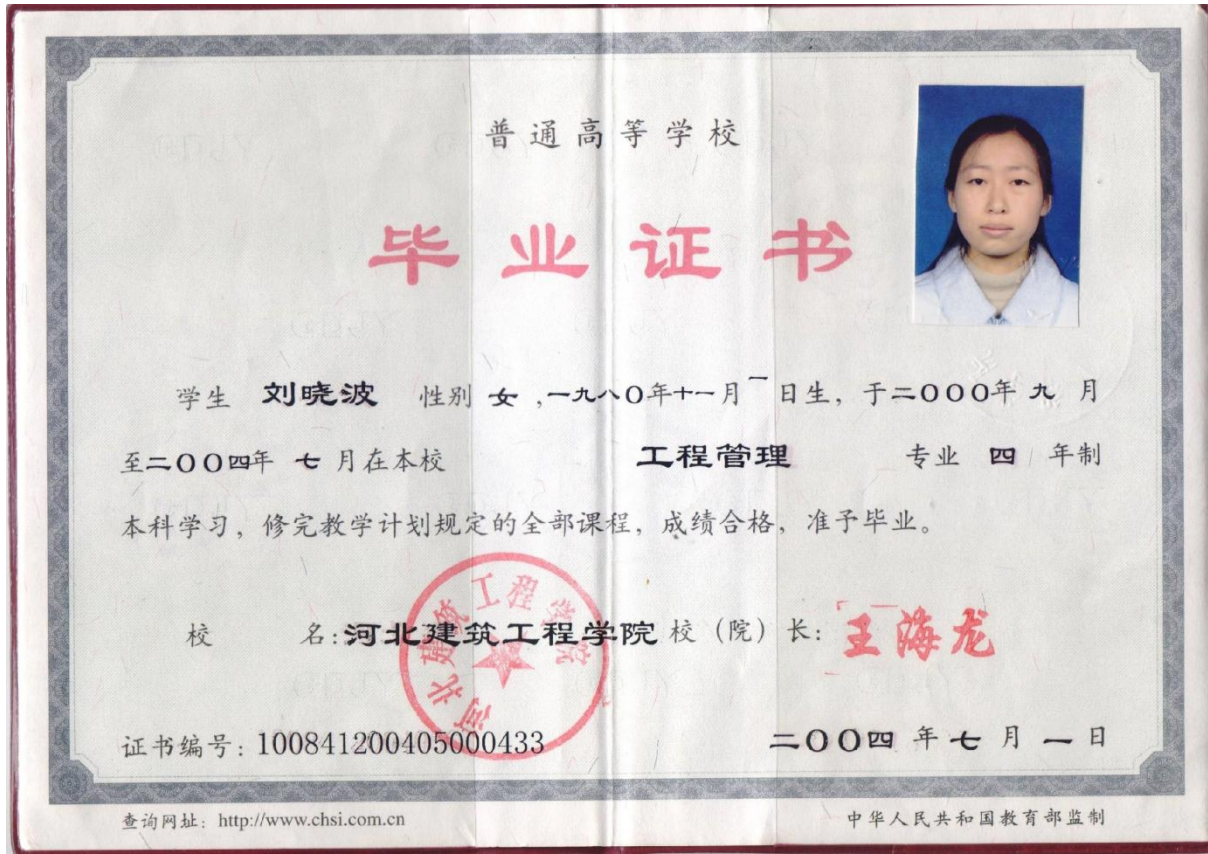 普通高等学校
毕业证书
学生 刘晓波 性别 女 ,一九八〇年十一月一日生, 于二〇〇〇年 九 月
至二〇〇四年 七 月在本校 工程管理 专业 四 年制
本科学习, 修完教学计划规定的全部课程, 成绩合格, 准予毕业。
河北建筑工程学院
校 名:河北建筑工程学院 校 (院) 长: 王海龙
证书编号: 100841200405000433 二〇〇四 年 七 月 一 日
查询网址: http://www.chsi.com.cn 中华人民共和国教育部监制